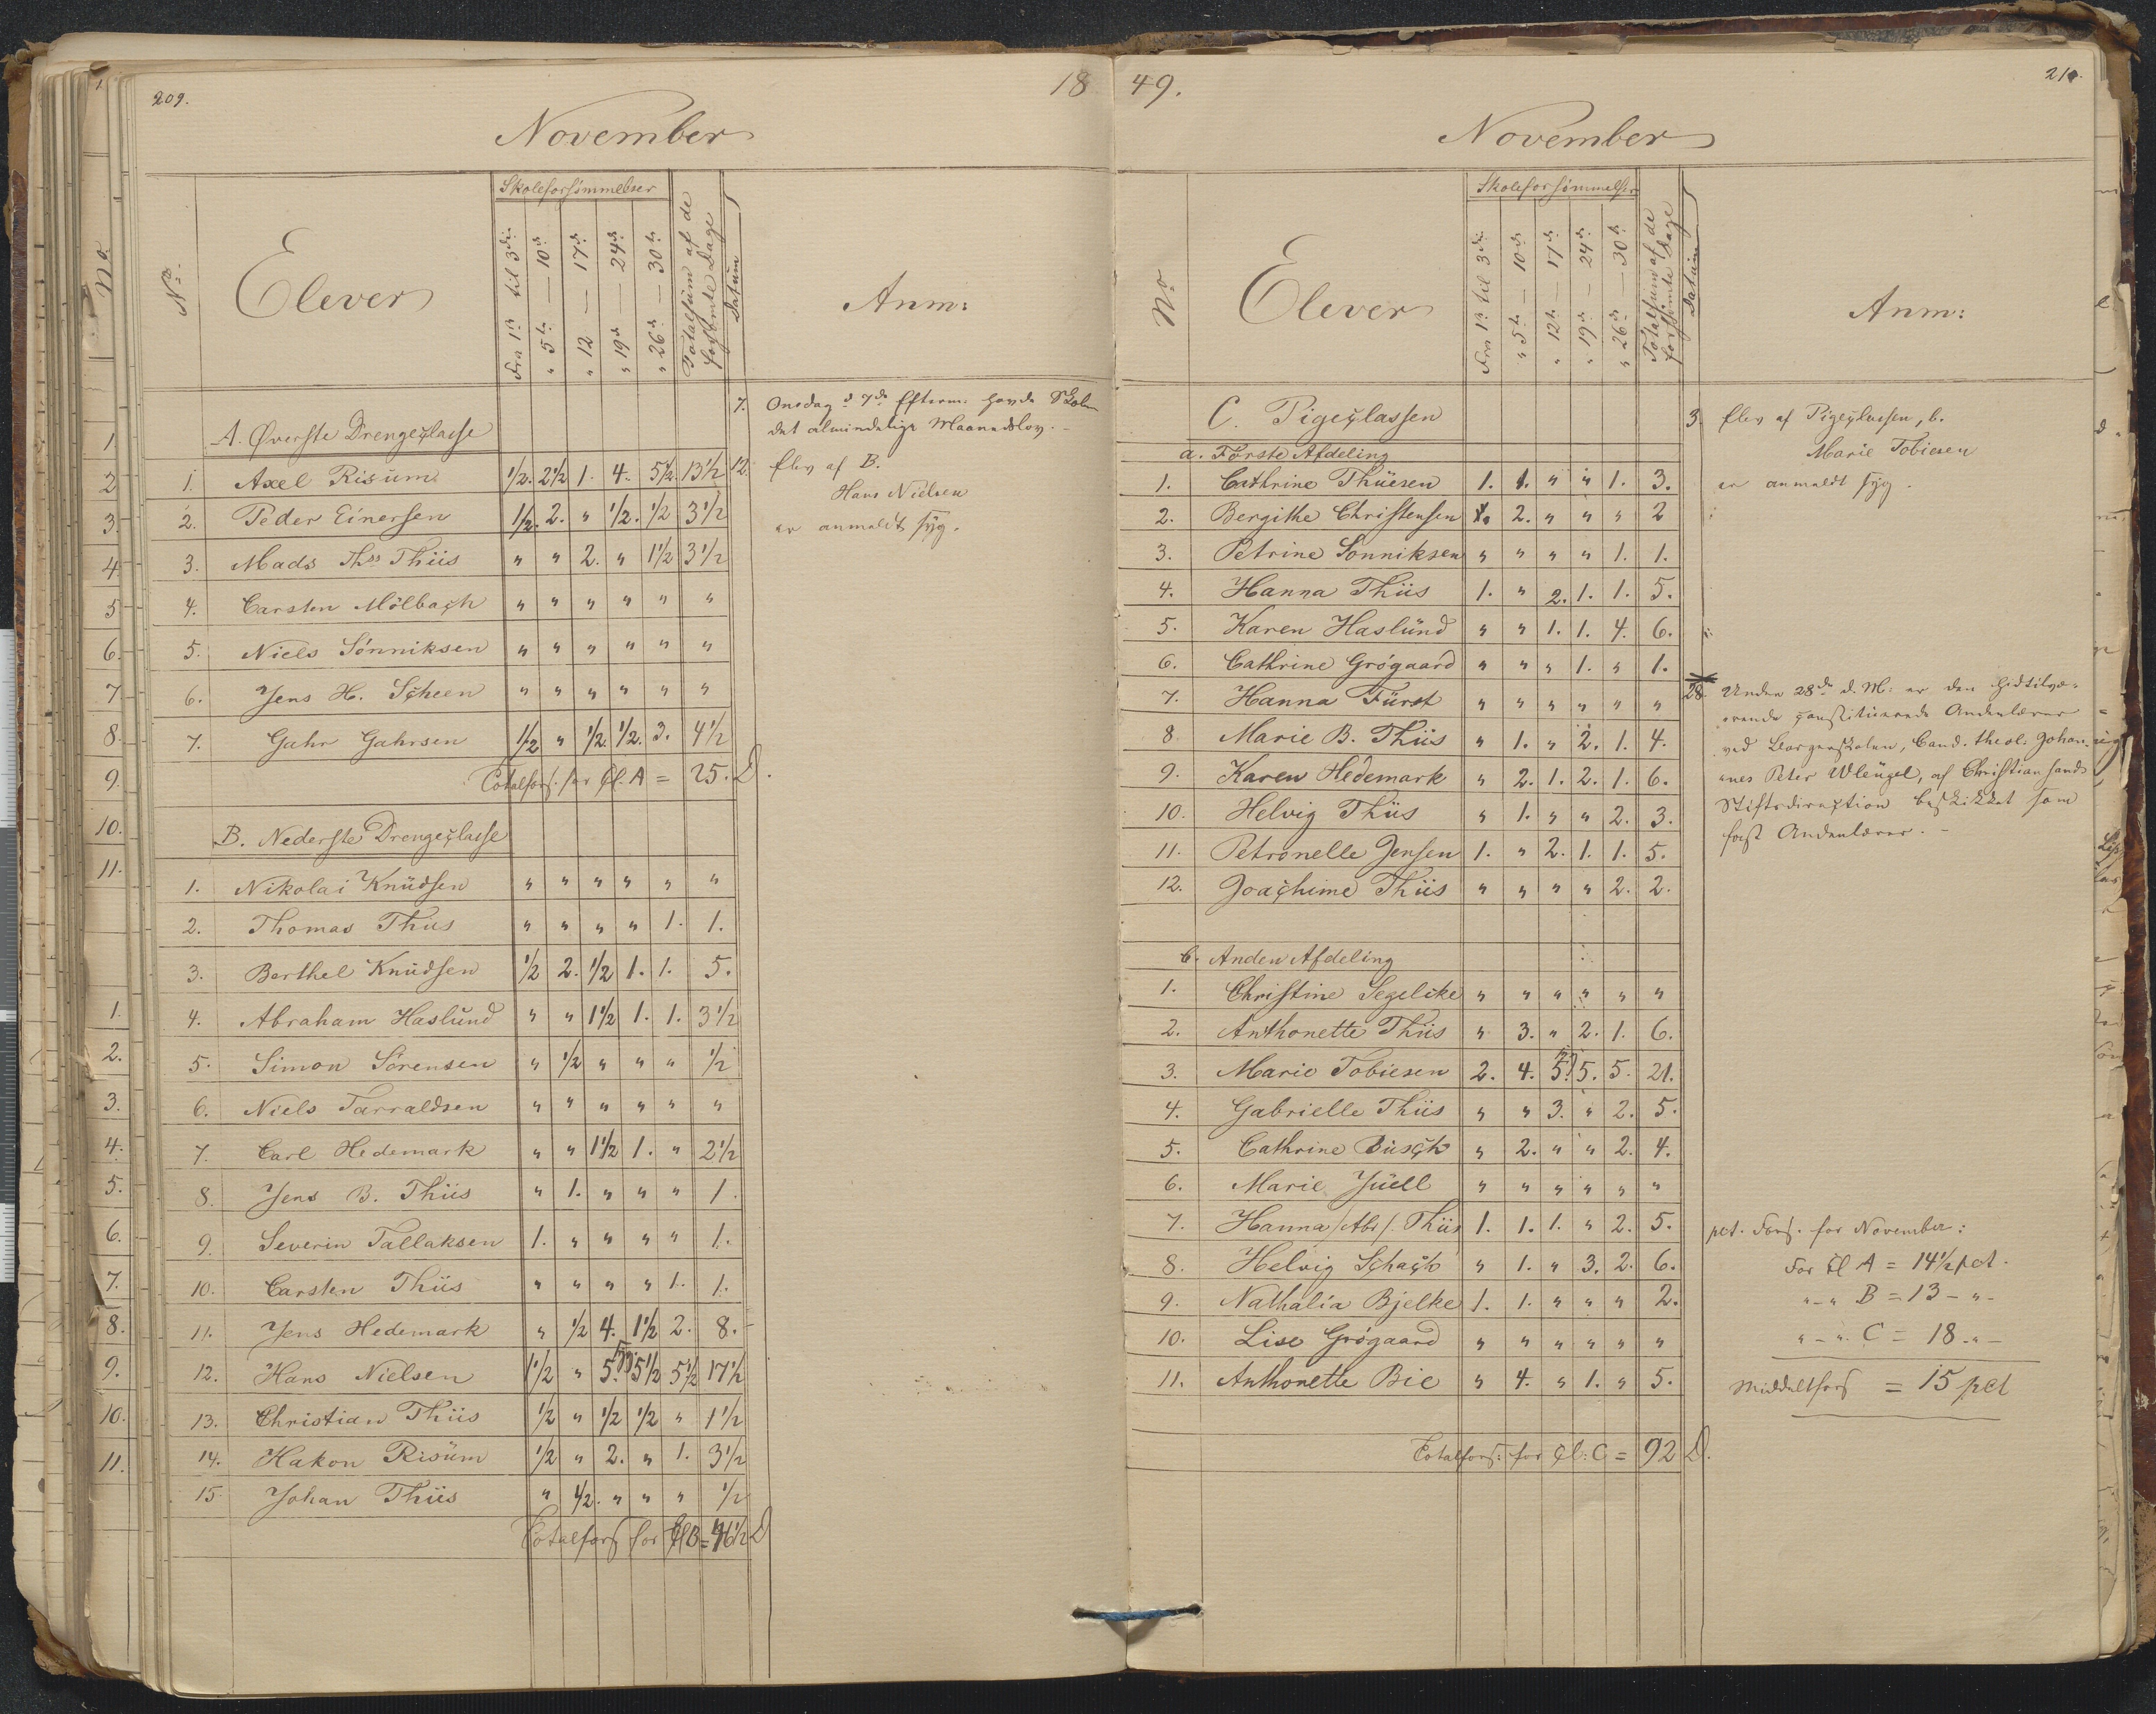 209.
18
November
Skoleforsømmelser
No.
Elever
Fra 1ste til 3die
" 5te — 10de
" 12 — 17de
" 19de — 24de
" 26de — 30te
Totalsum af de
forsømte Dage
Datum
Anm:
A. Øverste Drengeclasse
7. Onsdag d 7de Efterm: havde Skolen
det almindelige Maanedslov.
1. Axel Risum 1/2. 2 1/2 1. 4. 5 1/2. 13 1/2
12. Elev af B.
Hans Nielsen
er anmeldt syg.
2. Peder Einersen 1/2. 2. " 1/2. 1/2 3 1/2
3. Mads Ths Thiis " " 2. " 1 1/2 3 1/2
4. Carsten Mölbach " " " " " "
5. Niels Sønniksen " " " " " "
6. Jens H. Scheen " " " " " "
7. Gahr Gahrsen 1/2 " 1/2. 1/2. 3. 4 1/2
Totalfors: for Cl. A = 25. D.
B. Nederste Drengeclasse
1. Nikolai Knudsen " " " " " "
2. Thomas Thiis " " " " 1. 1.
3. Berthel Knudsen 1/2 2. 1/2 1. 1. 5.
4. Abraham Haslund " " 1 1/2 1. 1. 3 1/2
5. Simon Sörensen " 1/2 " " " 1/2
6. Niels Tarraldsen " " " " " "
7. Carl Hedemark " " 1 1/2 1. " 2 1/2
8. Jens B. Thiis " 1. " " " 1.
9. Severin Tallaksen 1. " " " " 1.
10. Carsten Thiis " " " " 1. 1.
11. Jens Hedemark " 1/2 4. 1 1/2 2. 8.
12. Hans Nielsen 1 1/2 " 5. syg 5 1/2 5 1/2 17 1/2
13. Christian Thiis 1/2 " 1/2 1/2 " 1 1/2
14. Hakon Risum 1/2 " 2. " 1. 3 1/2
15. Johan Thiis " 1/2. " " " 1/2
Totalfors for Cl B = 46 1/2 D
49.
210.
November
Skoleforsømmelser
No
Elever
Fra 1ste til 3die
" 5te — 10de
" 12te — 17de
" 19de — 24de
" 26de — 30te
Totalsum af de
forsømte Dage
Datum
Anm:
C. Pigeclassen
3. Elev af Pigeclassen, b.
Marie Tobiesen
er anmeldt syg.
a. Første Afdeling
1. Cathrine Thuesen 1. 1. " " 1. 3.
2. Bergithe Christensen 2. " " " 2
3. Petrine Sonniksen " " " " 1. 1.
4. Hanna Thiis 1. " 2. 1. 1. 5.
5. Karen Haslund " " 1. 1. 4. 6.
6. Cathrine Grøgaard " " " 1. " 1.
7. Hanna Fürst " " " " " "
8. Marie B. Thiis " 1. " 2. 1. 4.
9. Karen Hedemark " 2. 1. 2. 1. 6.
10. Helvig Thiis " 1. " " 2. 3.
11. Petronelle Jensen 1. " 2. 1. 1. 5.
12. Joachime Thiis " " " " 2. 2.
28. Under 28de d. M: er den hidtilvæ-
rende constituerede Andenlærer
ved Borgerskolen, Cand. theol. Johan-
nes Peter Wleügel, af Christiansands
Stiftsdirection beskikket som
fast Andenlærer. -
b. Anden Afdeling
1. Christine Segelcke " " " " " "
2. Anthonette Thiis " 3. " 2. 1. 6.
3. Marie Tobiesen 2. 4. 5. 5. 5. 21.
4. Gabrielle Thiis " " 3. " 2. 5.
5. Cathrine Busch " 2. " " 2. 4.
6. Marie Juell " " " " " "
7. Hanna /Abr/. Thiis 1. 1. 1. " 2. 5.
8. Helvig Schach " 1. " 3. 2. 6.
9. Nathalia Bjelke 1. 1. " " " 2.
10. Lise Grøgaard " " " " " "
11. Anthonette Bie " 4. " 1. " 5.
Totalfors: for Cl: C = 92 D.
pct. Fors. for November:
For Cl A = 14 1/2 pct.
" - " B = 13 - " -
" - " C = 18 - " -
Middeltfors = 15 pct